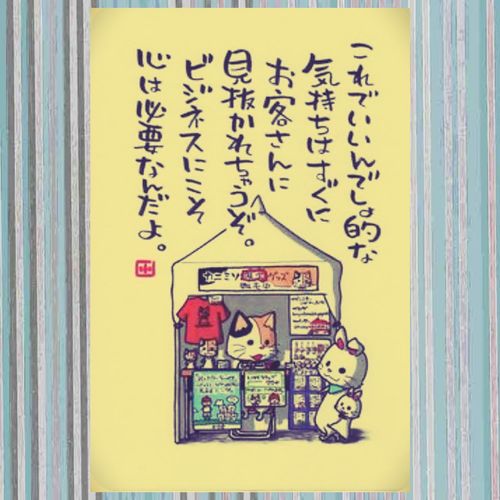 これでいいんでしょ的な
気持ちはすぐに
お客さんに
見抜かれちゃうぞ。
ビジネスにこそ
心は必要なんだよ。
カニミソ
グッズ
販売中